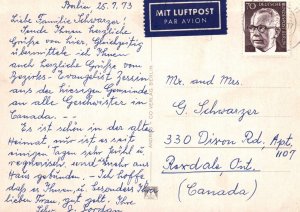 Berlin 25.9.73
Liebe Familie Schwarzer!
Sende Ihnen herzliche
Grüße von hier, Gleichzeitig
übermittele ich Ihnen
auch herzliche Grüße vom
Bezirks-Evangelist
aus der hiesigen Gemeinde
an alle Geschwister in
Canada. - -
Es ist schön in der alten
Heimat nur ist es seit
einigen Tagen sehr kühl und
regnerisch, sind mehr am
Haus gebunden. - Ich hoffe
daß es Ihnen u. besonders Ihrem
lieben Frau, gut geht. Ihre
Schw. G. Jordan
MIT LUFTPOST
PAR AVION
70
DEUTSCHE
Mr. and Mrs.
G. Schwarzer
330 Dixon Rd, Apt.
1107
Rexdale, Ont.
(Canada)